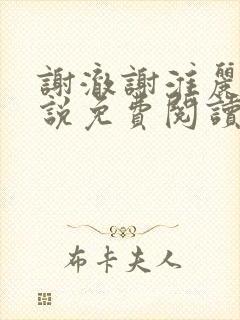 謝澈謝淮麗
說免費閱讀
布卡夫人